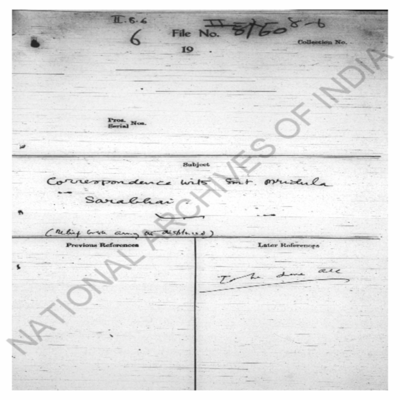 II. 8-6
6 File No. II 8/60 8-6
19 Collection No.
Pros. Nos.
Serial
Subject
Correspondence with Smt. Mridula
Sarabhai
(Relief work among the displaced)
Previous References
Later References
NATIONAL ARCHIVES OF INDIA